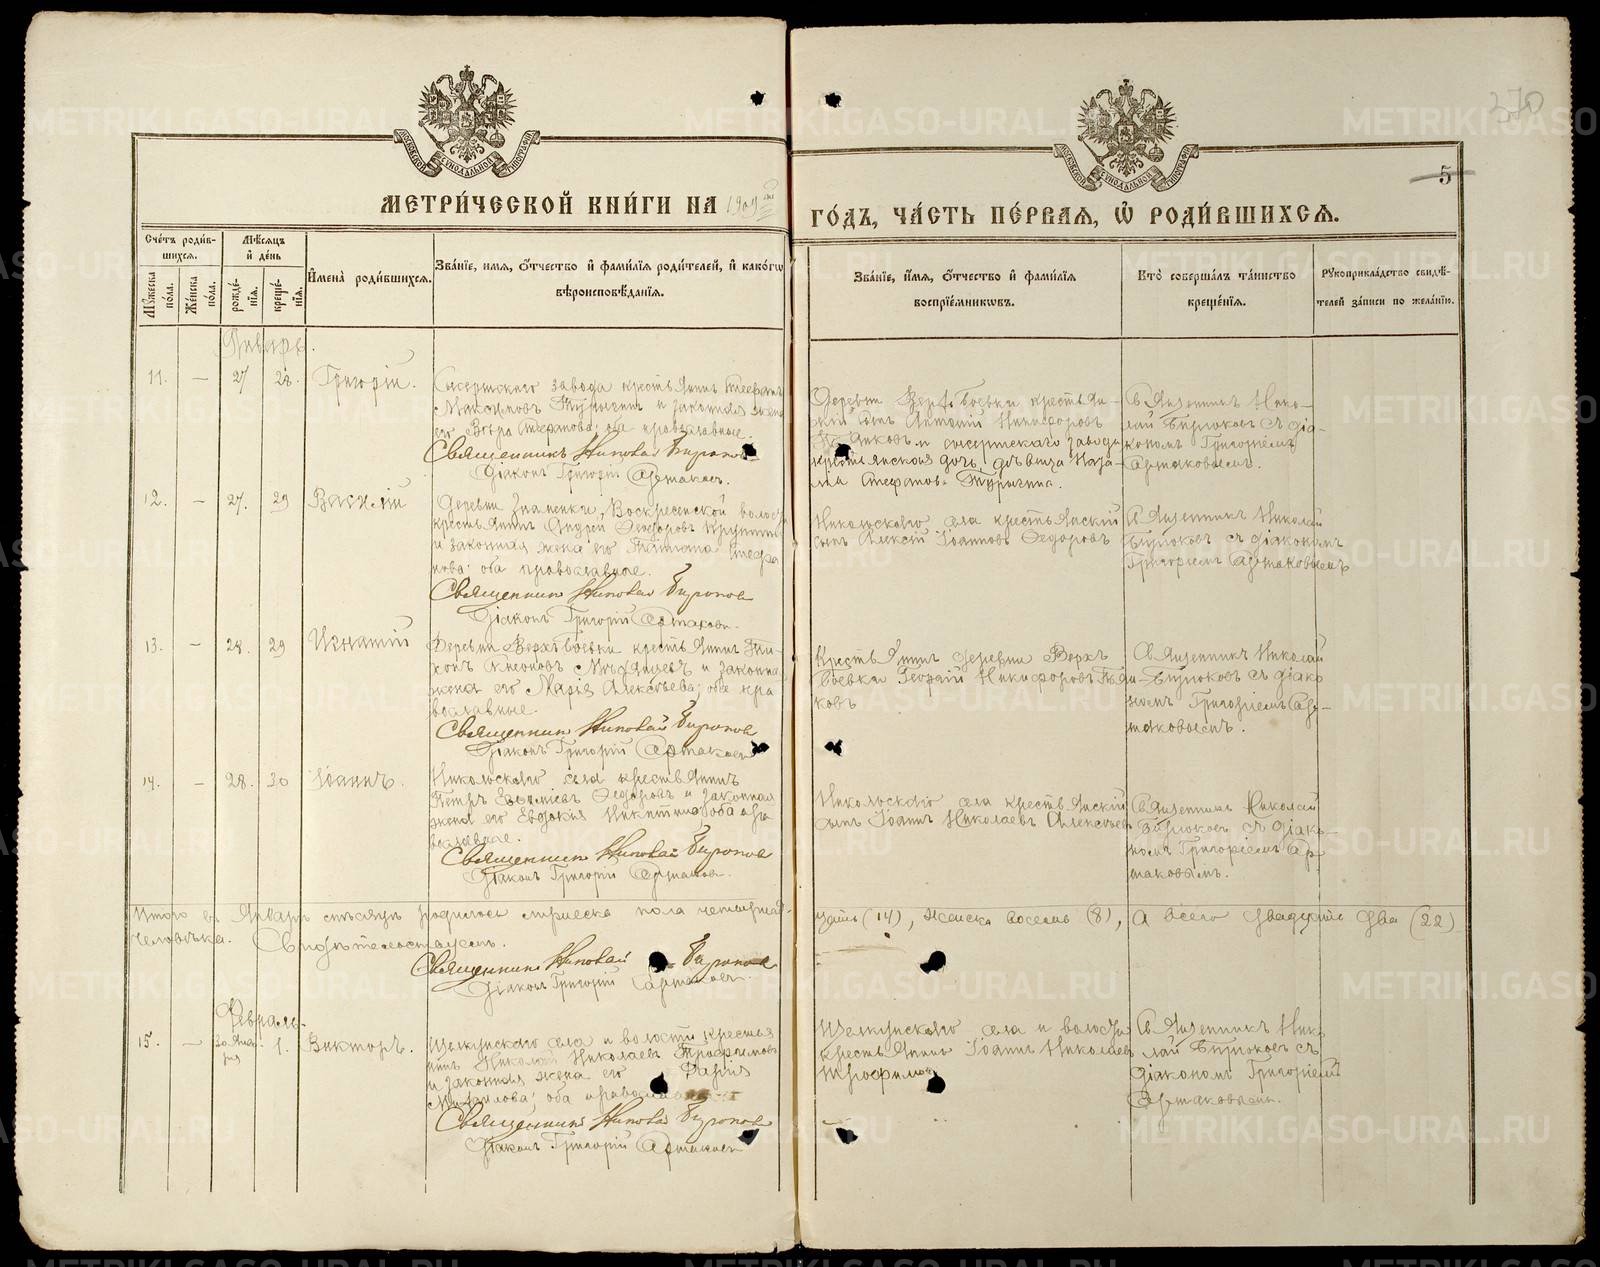 370
5
МЕТРИ́ЧЕСКОЙ КНИ́ГИ НА 1909 ГО́ДЪ, ЧА́СТЬ ПЕ́РВАЯ, Ѿ РОДИ́ВШИХСЯ.
Сче́тъ роди́в-
шихся.
Мꙋ́жеска по́ла.
Же́нска по́ла.
Мѣ́сяцъ и҆ де́нь
рожде́-
нїя.
креще́-
нїя.
И҆мена̀ роди́вшихся.
Зва́нїе, имя, ѻ҆́тчество и҆ фами́лїя роди́телей, и҆ како́гѡ
вѣроисповѣ́данїя.
Зва́нїе, и҆́мя, ѻ҆́тчество и҆ фами́лїя
воспрїе́мникѡвъ.
Кто̀ соверша́лъ та́инство
креще́нїя.
Рꙋкоприкла́дство свидѣ́-
телей за́писи по жела́нїю.
Январь.
11. — 27 28. Григорій.
Сысертскаго завода крестьянинъ Стефанъ
Максимовъ и законная жена
его Вѣра Стефанова; оба православные.
Священникъ Николай Бирюковъ
Діаконъ Григорій Артаковъ.
Деревни Верхъ Боевки крестьян-
скій сынъ Антоній Никифоровъ
и сысертскаго завода
крестьянская дочь, дѣвица
Стефанова
Священникъ Нико-
лай Бирюковъ съ діа-
кономъ Григоріемъ
Артаковымъ.
12. — 27. 29 Василій
Деревни Знаменки, Воскресенской волости
крестьянинъ Андрей Феодоровъ
и законная жена его Татіана Стефа
нова; оба православные.
Священникъ Николай Бирюковъ
Діаконъ Григорій Артаковъ.
Никольскаго села крестьянскій
сынъ Алексій Іоанновъ Феодоровъ
Священникъ Николай
Бирюковъ съ діакономъ
Григоріемъ Артаковымъ
13. — 28. 29 Игнатій
Деревни Верхъ Боевки крестьянинъ Ти-
хонъ и законная
жена его Марія Алексѣева; оба пра
вославные.
Священникъ Николай Бирюковъ
Діаконъ Григорій Артаковъ
Крестьянинъ деревни Верхъ
Боевки Георгій Никифоровъ
ковъ
Священникъ Николай
Бирюковъ съ діако
номъ Григоріемъ Ар-
таковымъ.
14. — 28. 30 Іоаннъ.
Никольскаго села крестьянинъ
Петръ Евѳиміевъ Феодоровъ и законная
жена его Евдокія Никитина; оба пра
вославные.
Священникъ Николай Бирюковъ
Діаконъ Григорій Артаковъ.
Никольскаго села крестьянскій
сынъ Іоаннъ Николаевъ Алексѣевъ
Священникъ Николай
Бирюковъ съ діако-
номъ Григоріемъ Ар-
таковымъ.
Итого въ Январѣ мѣсяцѣ родилось мужеска пола четырнад-
цать (14), женска восемь (8), а всего двадцать два (22)
человѣка. Свидѣтельствуемъ.
Священникъ Николай Бирюковъ
Діаконъ Григорій Артаковъ.
Февраль.
15. — 30 Янва-
ря 1. Викторъ.
Щелкунскаго села и волости крестья
нинъ Николай Николаевъ Трофимовъ
и законная жена его Марія
Михаилова; оба православные
Священникъ Николай Бирюковъ
Діаконъ Григорій Артаковъ
Щелкунскаго села и волости
крестьянинъ Іоаннъ Николаевъ
Трофимовъ
Священникъ Нико
лай Бирюковъ съ
діакономъ Григоріемъ
Артаковымъ.
METRIKI.GASO-URAL.RU